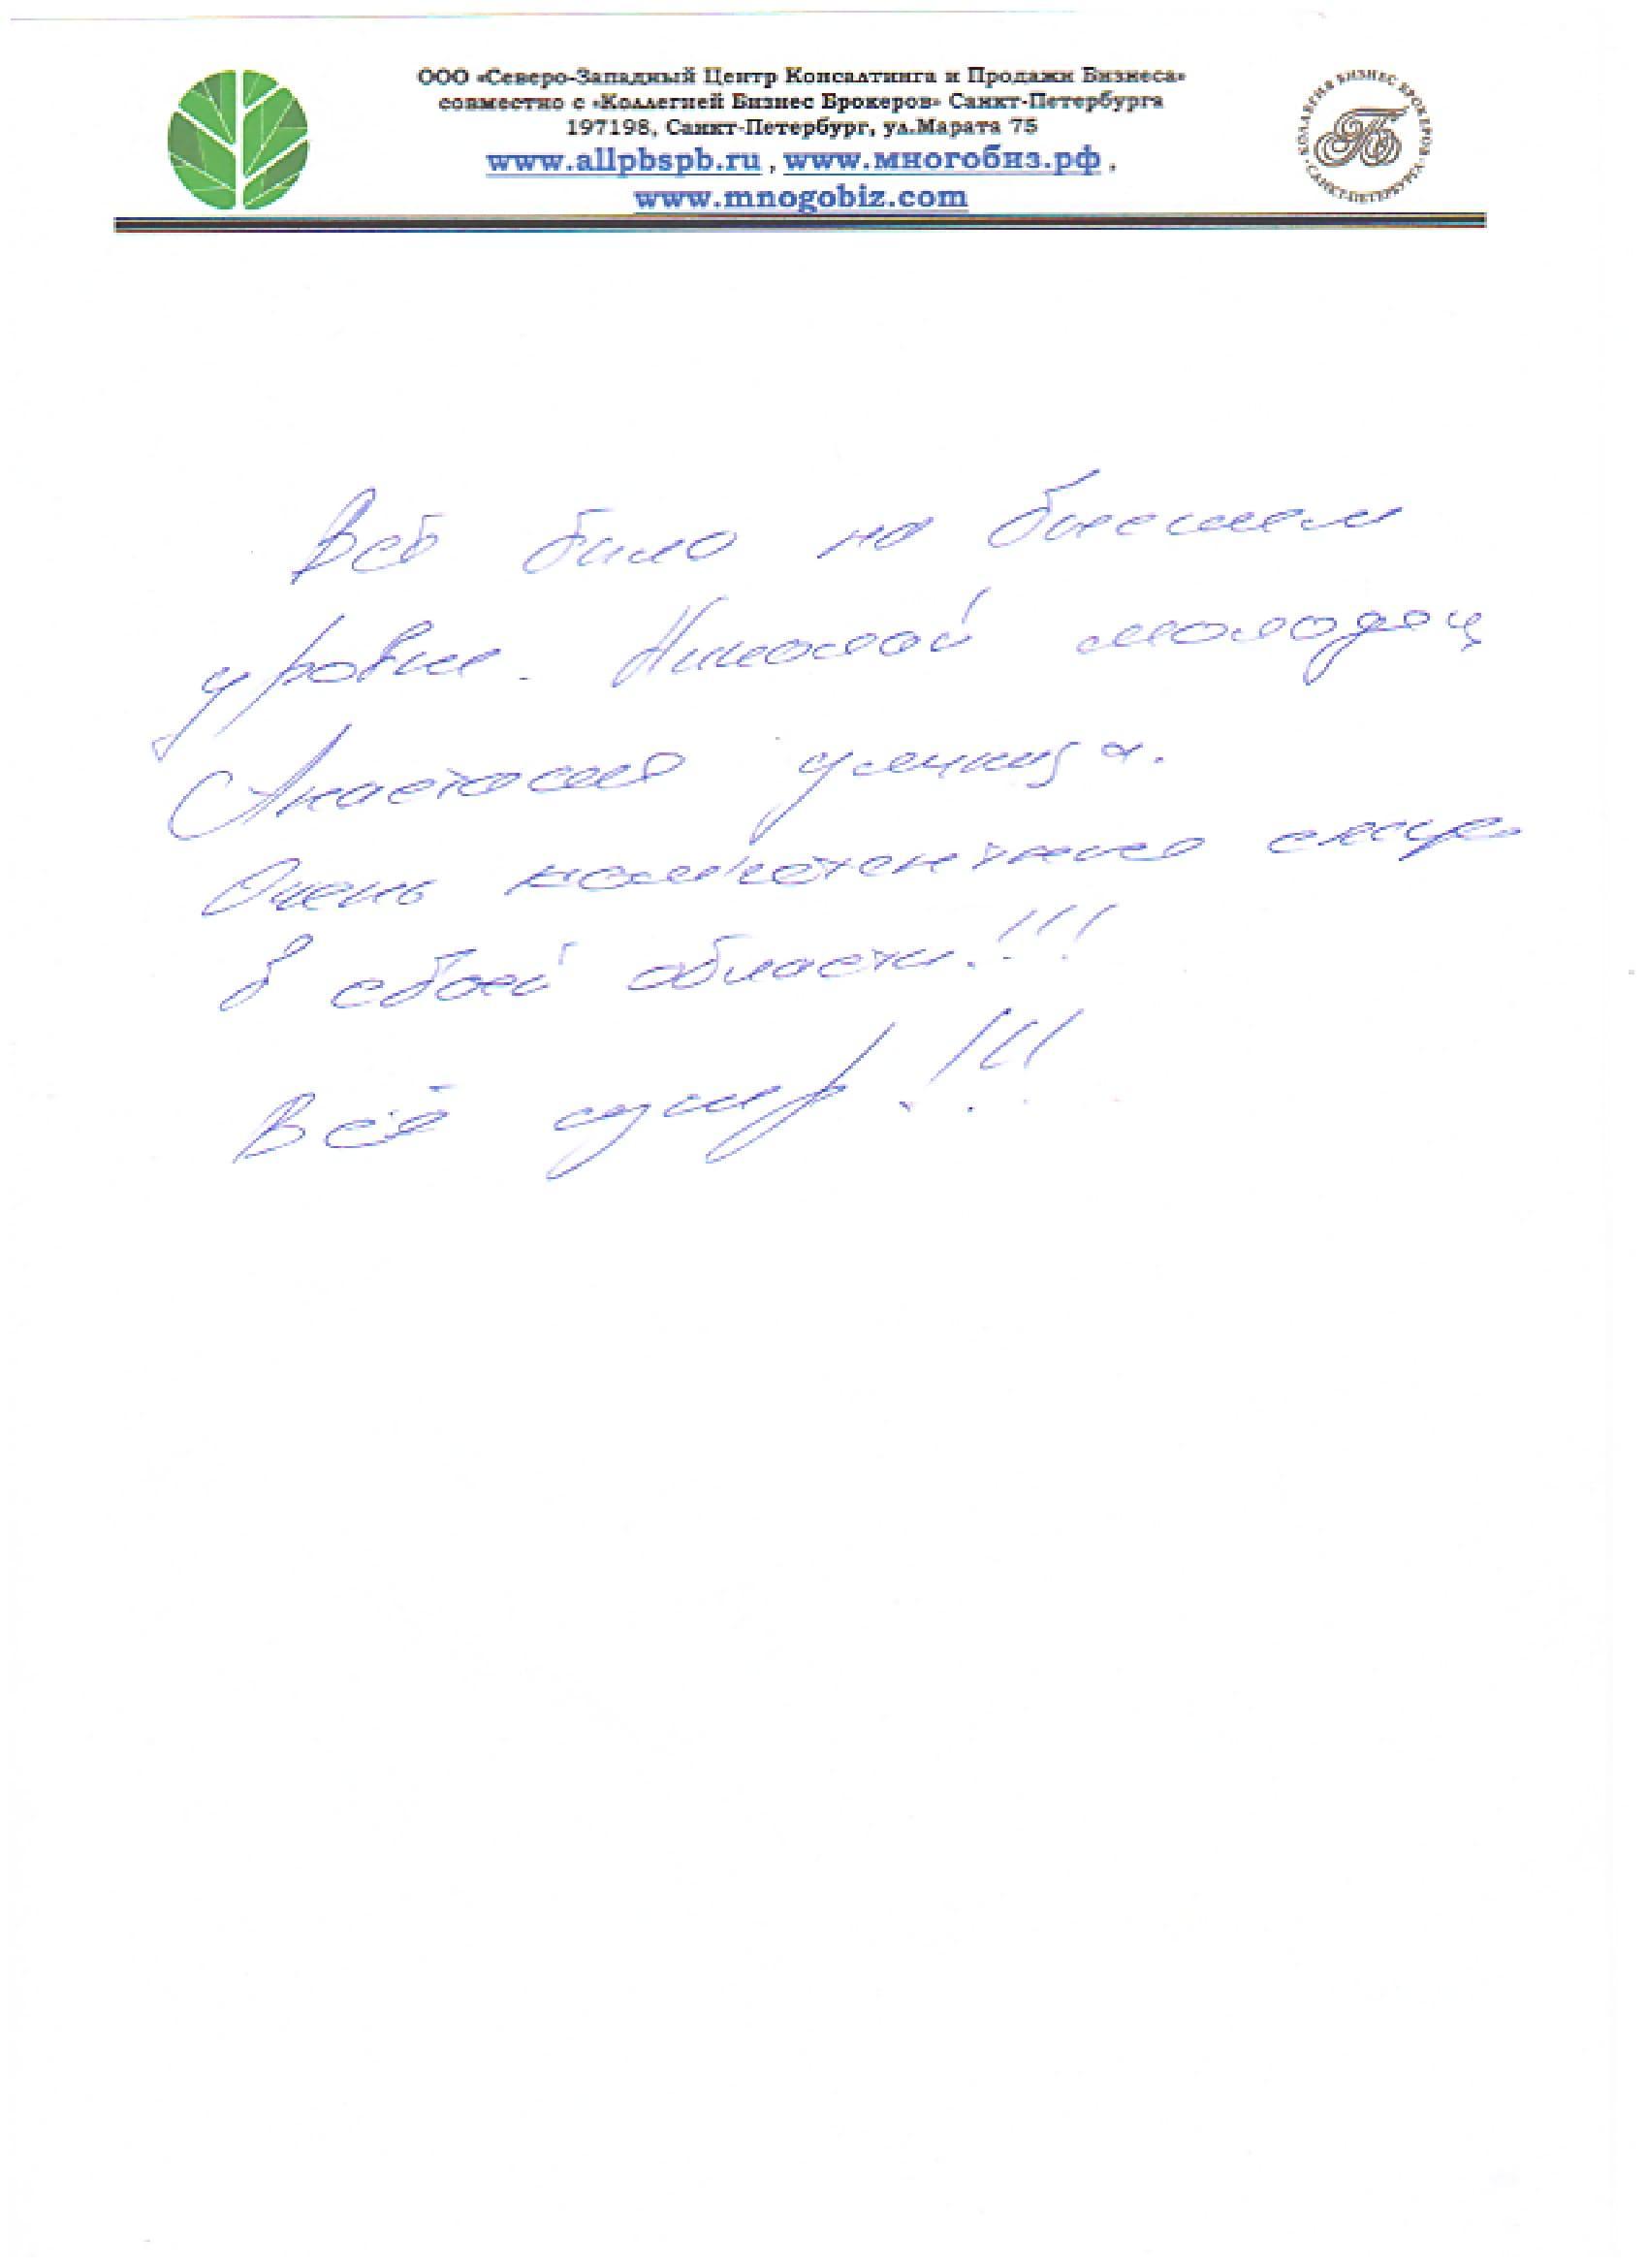 ООО «Северо-Западный Центр Консалтинга и Продажи Бизнеса»
совместно с «Коллегией Бизнес Брокеров» Санкт-Петербурга
197198, Санкт-Петербург, ул.Марата 75
www.allpbspb.ru , www.многобиз.рф ,
www.mnogobiz.com
КОЛЛЕГИЯ БИЗНЕС БРОКЕРОВ
САНКТ-ПЕТЕРБУРГА
Всё было на
уровне. Николай молодец
Анастасия умница.
Очень компетентные
в своей области!!!
Всё супер!!!